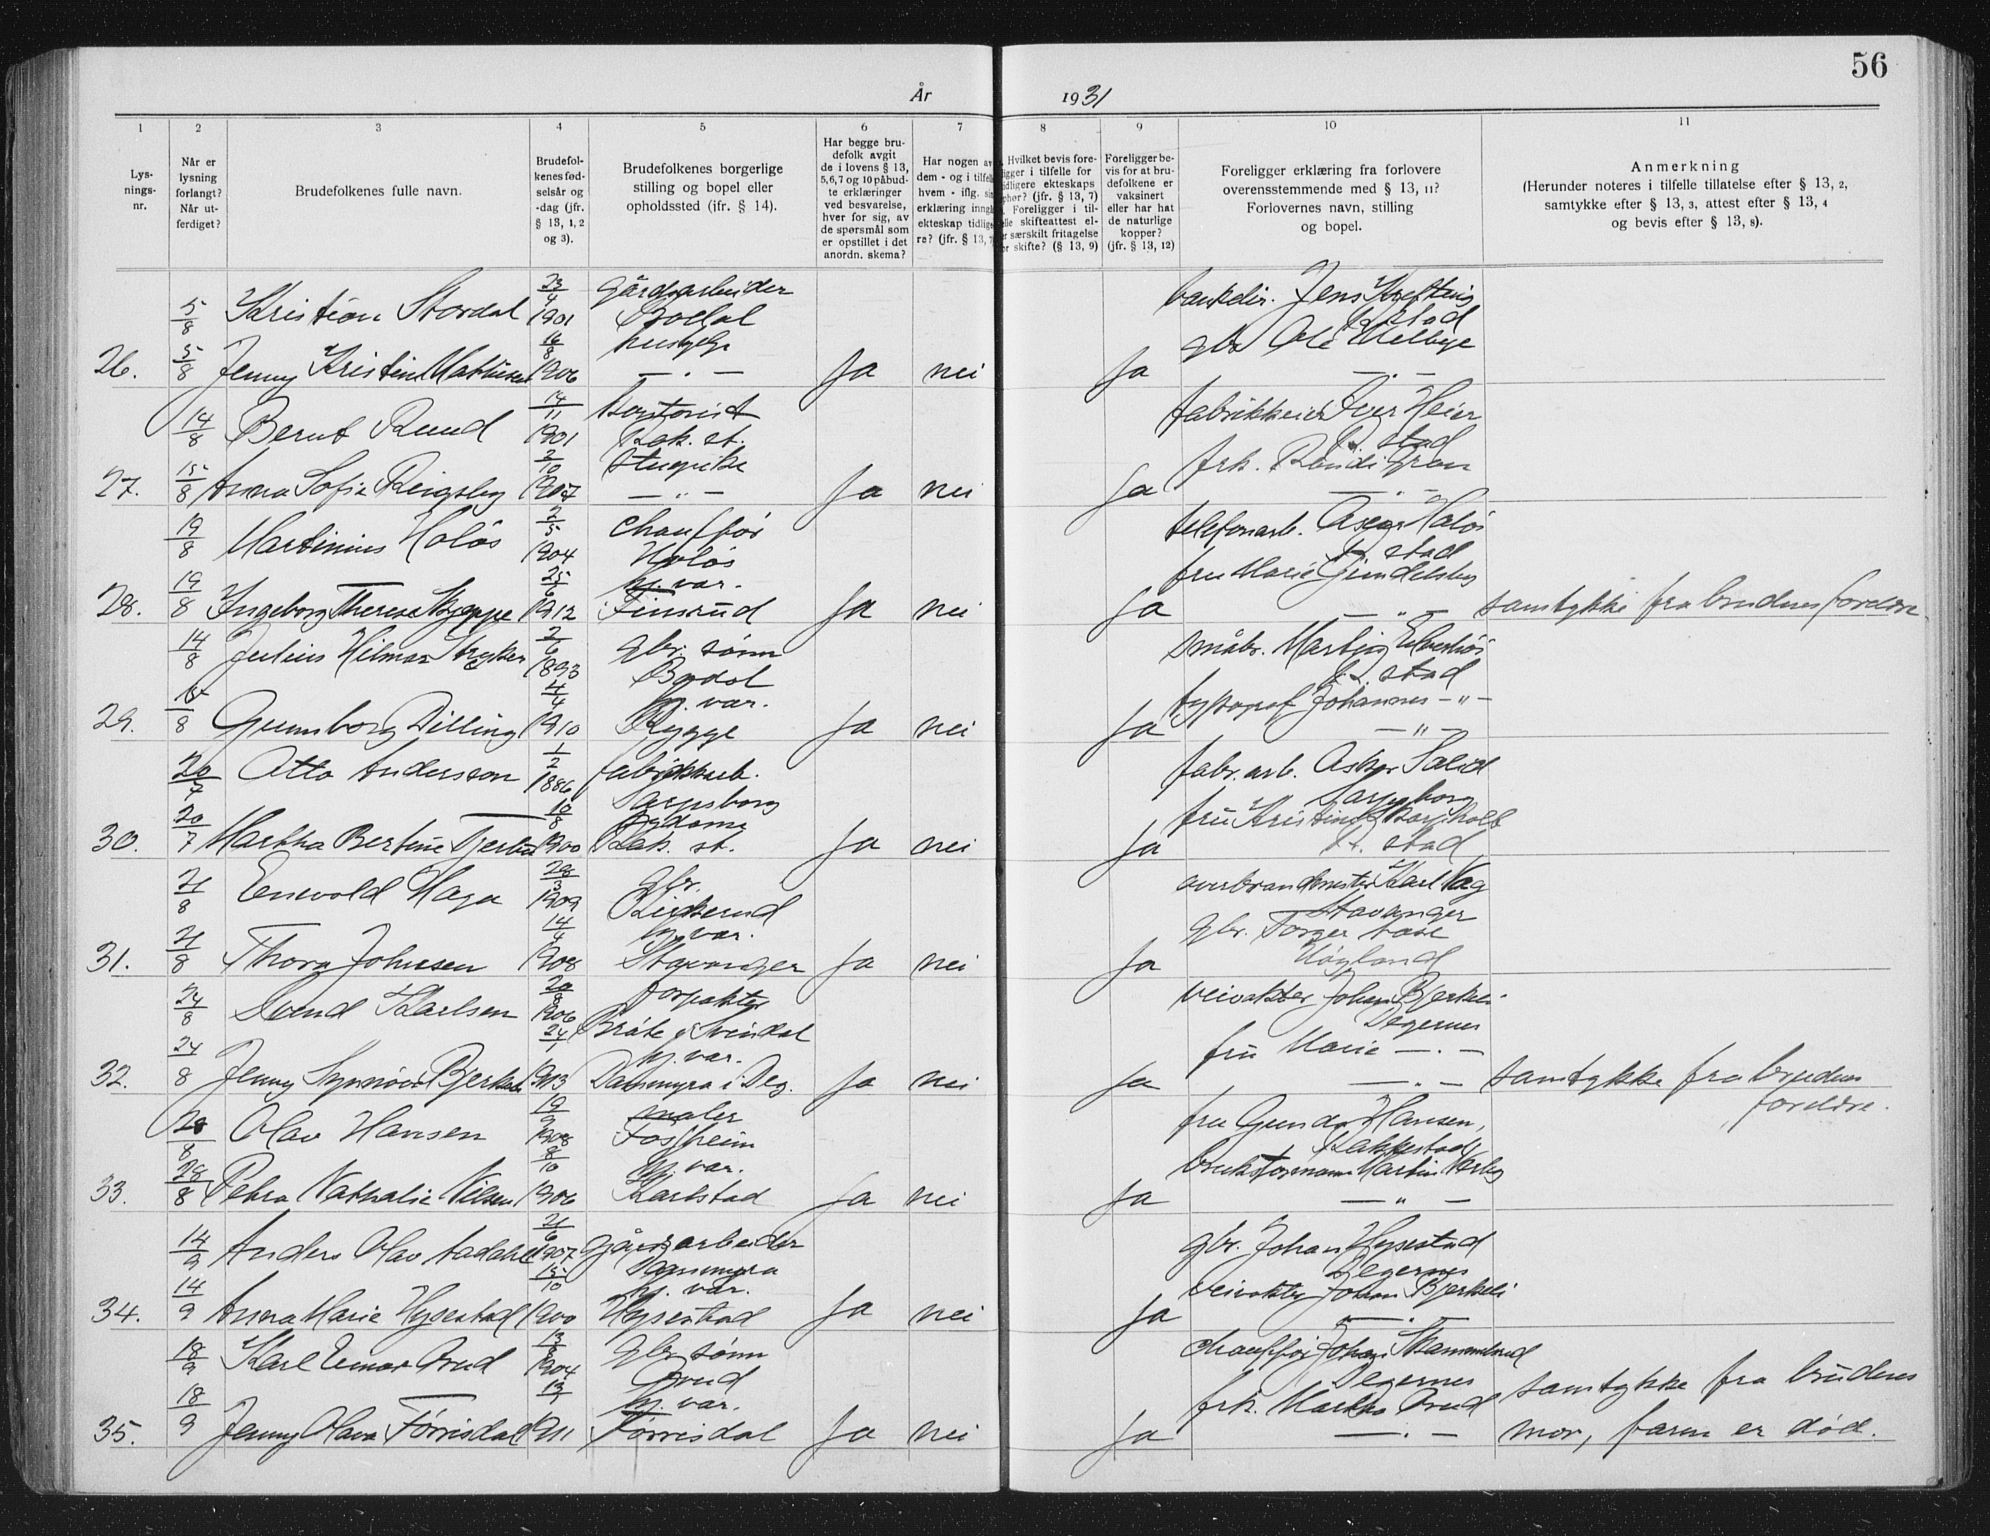 56
År 1931
1 2 3 4 5 6 7 8 9 10 11
Lys-
nings-
nr.
Når er
lysning
forlangt?
Når ut-
ferdiget?
Brudefolkenes fulle navn.
Brudefol-
kenes fød-
selsår og
-dag (jfr.
§ 13, 1, 2
og 3).
Brudefolkenes borgerlige
stilling og bopel eller
opholdssted (jfr. § 14).
Har begge bru-
defolk avgit
de i lovens § 13,
5, 6, 7 og 10 påbud-
te erklæringer
ved besvarelse,
hver for sig, av
de spørsmål som
er opstillet i det
anordn. skema?
Har nogen av
dem - og i tilfelle
hvem - iflg. sin
erklæring inngå
ekteskap tidlige
re? (jfr. § 13, 7
Hvilket bevis fore-
igger i tilfelle for
idligere ekteskaps
phør? (jfr. § 13, 7)
Foreligger i til-
elle skifteattest el-
r særskilt fritagelse
or skifte? (§ 13, 9)
Foreligger be-
vis for at bru-
defolkene er
vaksinert
eller har hat
de naturlige
kopper?
(jfr. § 13, 12)
Foreligger erklæring fra forlovere
overensstemmende med § 13, 11?
Forlovernes navn, stilling
og bopel.
Anmerkning
(Herunder noteres i tilfelle tillatelse efter § 13, 2,
samtykke efter § 13, 3, attest efter § 13, 4
og bevis efter § 13, 8).
5/8 Kristian Stordal 23/4 1901 gårdsarbeider Bodal bankdir. Jens Kjefting R. stad
26. 5/8 Jenny Kristine Mathisen 16/8 1906 hushj. — " — Ja nei Ja gbr. Ole Melbye — " —
14/8 Bernt Ruud 14/11 1901 Kontorist Rak. st. fabrikkeier Iver Heier R. stad
27. 15/8 Anna Sofie Ringsby 2/10 1907 stuepike — " — Ja nei Ja frk. Randi Gran — " —
19/8 Martinius Holøs 2/5 1904 chauffør Holøs telefonarb. Asgar Holøs R. stad
28. 19/8 Ingeborg Therese Skjeppe 25/6 1912 hj. var. Finsrud Ja nei Ja fru Marie Gundelsby — " — samtykke fra brudens foreldre
14/8 Julius Hilmar Stryker 2/6 1893 gbr. sønn Bodal småbr. Martin Elvestad R. stad
29. 15/8 Gunnborg Dilling 4/4 1910 hj. var. Rygge Ja nei Ja typograf Johannes — " — — " —
20/7 Otto Anderson 1/2 1886 fabrikkarb. Sarpsborg fabr. arb. Asker Solid Sarpsborg
30. 20/7 Martha Bertine 10/8 1900 Rak. st. Ja nei Ja fru Kristine R. stad
21/8 Enevold Haga 29/3 1909 gbr. Kirkerud overbrandmester Karl Vag Stavanger
31. 21/8 Thora Johnsen 14/4 1908 hj. var. Stavanger Ja nei Ja gbr. Torger Høyland
24/8 Svend Karlsen 20/8 1906 forpakter Bråte i Svindal veivokter Johan Bjerkeli Degernes
32. 24/8 Jenny Synnøve Bjerkeli 24/1 1913 hj. var. Dammyra i Deg. Ja nei Ja fru Marie — " — — " — samtykke fra brudens foreldre.
28/8 Olav Hansen 19/9 1908 maler Fossheim fru Gunda Hansen, Rakkestad
33. 28/8 Petra Nathalie Nilsen 8/10 1906 hj. var. Karlstad Ja nei Ja bruksformann Martin — " —
14/9 Anders Olav 21/6 1907 gårdsarbeider Dammyra gbr. Johan Hysestad Degernes
34. 14/9 Anna Marie Hysestad 15/10 1900 hj. var. Hysestad Ja nei Ja veivokter Johan Bjerkeli — " —
18/9 Karl Einar Orud 13/8 1904 gbr. sønn Orud chauffør Johan Skammelsrud Degernes
35. 18/9 Jenny Olava Tørrisdal 13/1 1911 hj. var. Tørrisdal Ja nei Ja frk. Martha Orud — " — samtykke fra brudens mor, faren er død.